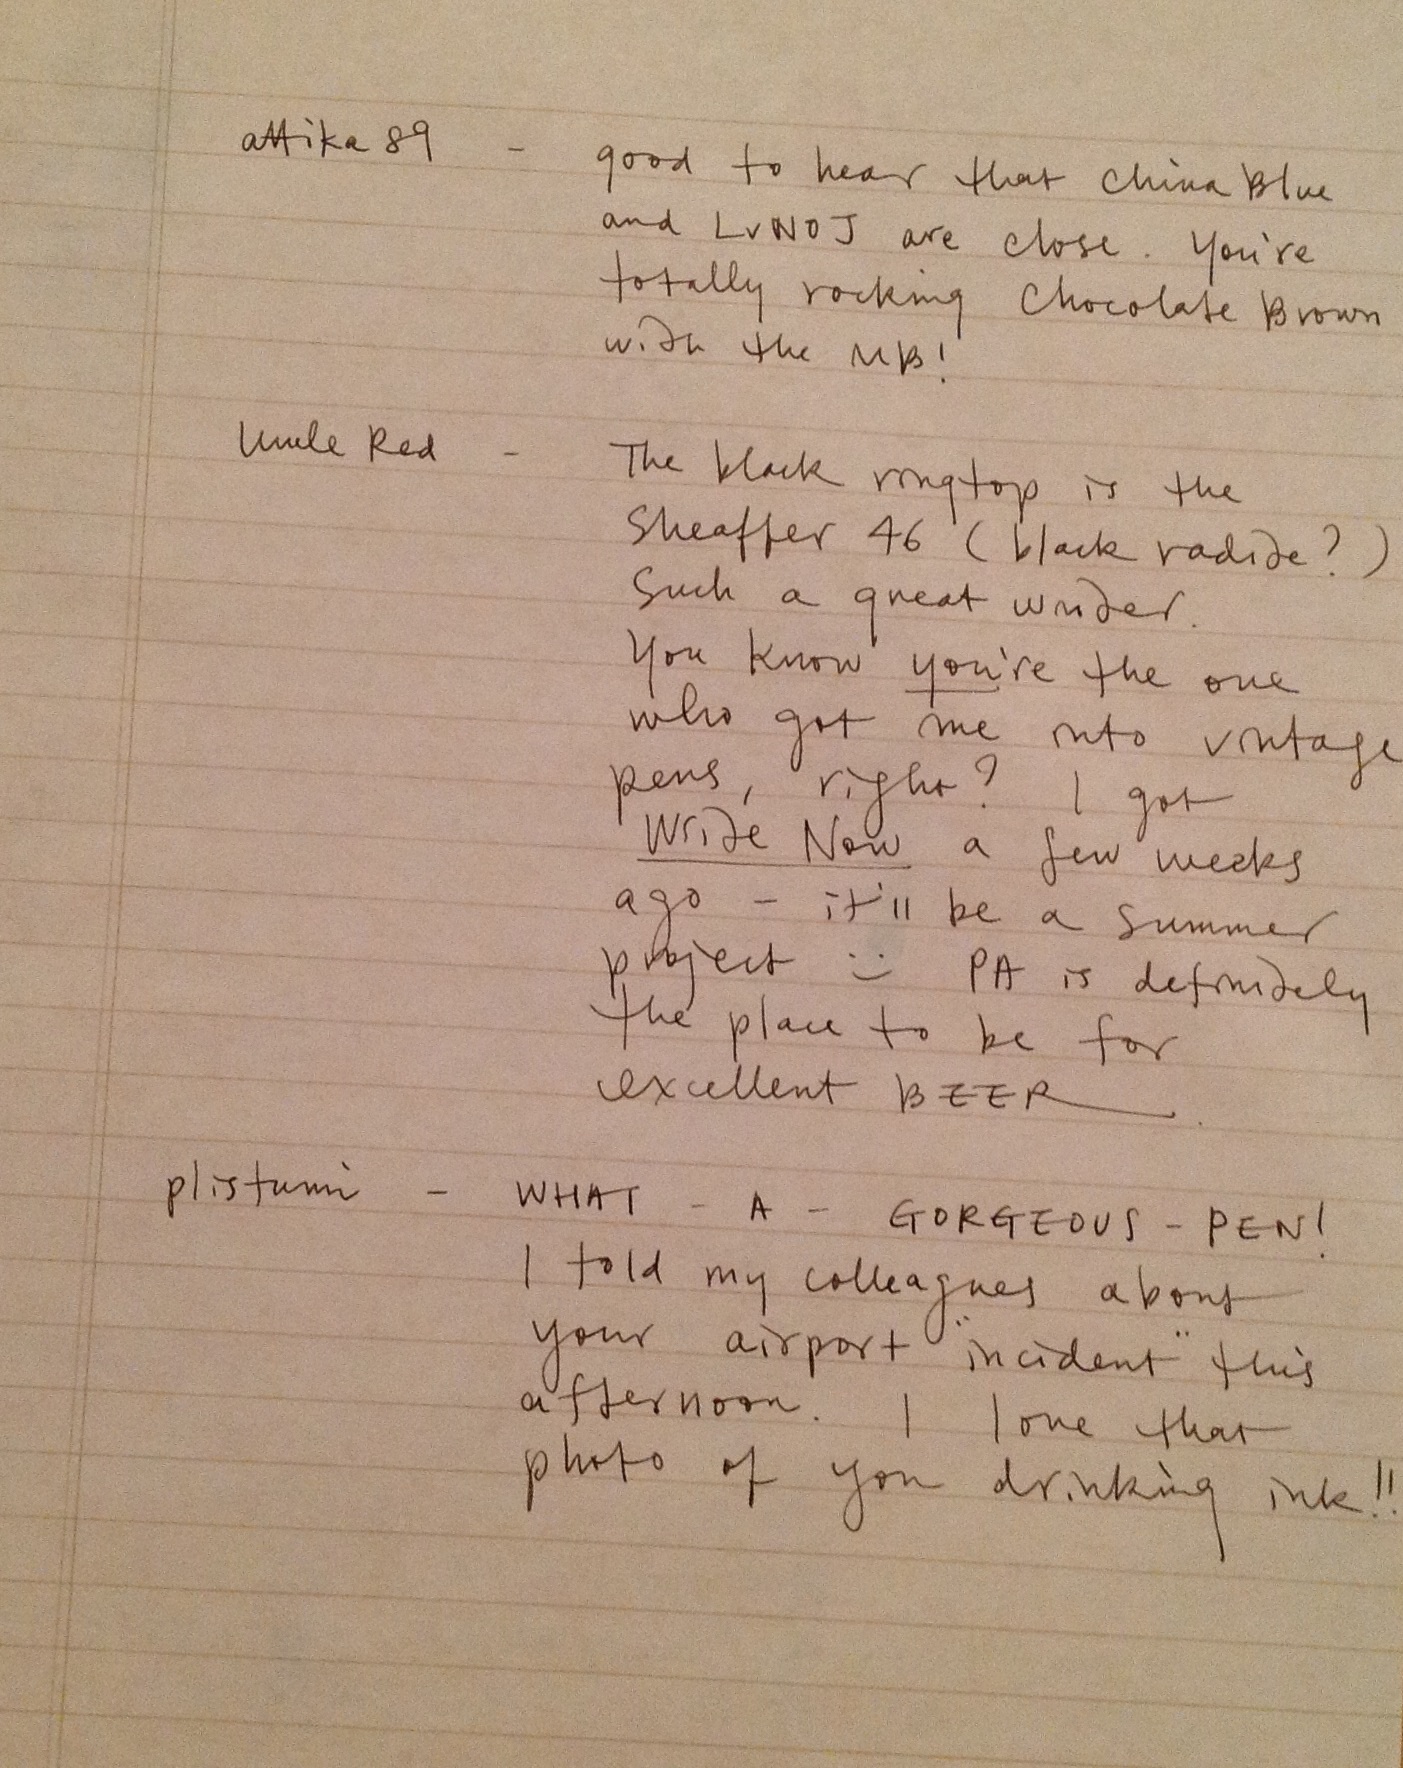 attika89 - good to hear that China Blue
and LvNOJ are close. You're
totally rocking Chocolate Brown
with the MB!
Uncle Red - The black ringtop is the
Sheaffer 46 (black radite?)
Such a great writer.
You know you're the one
who got me into vintage
pens, right? I got
Write Now a few weeks
ago - it'll be a summer
project :) PA is definitely
the place to be for
excellent BEER.
plistumi - WHAT - A - GORGEOUS - PEN!
I told my colleagues about
your airport "incident" this
afternoon. I love that
photo of you drinking ink!!